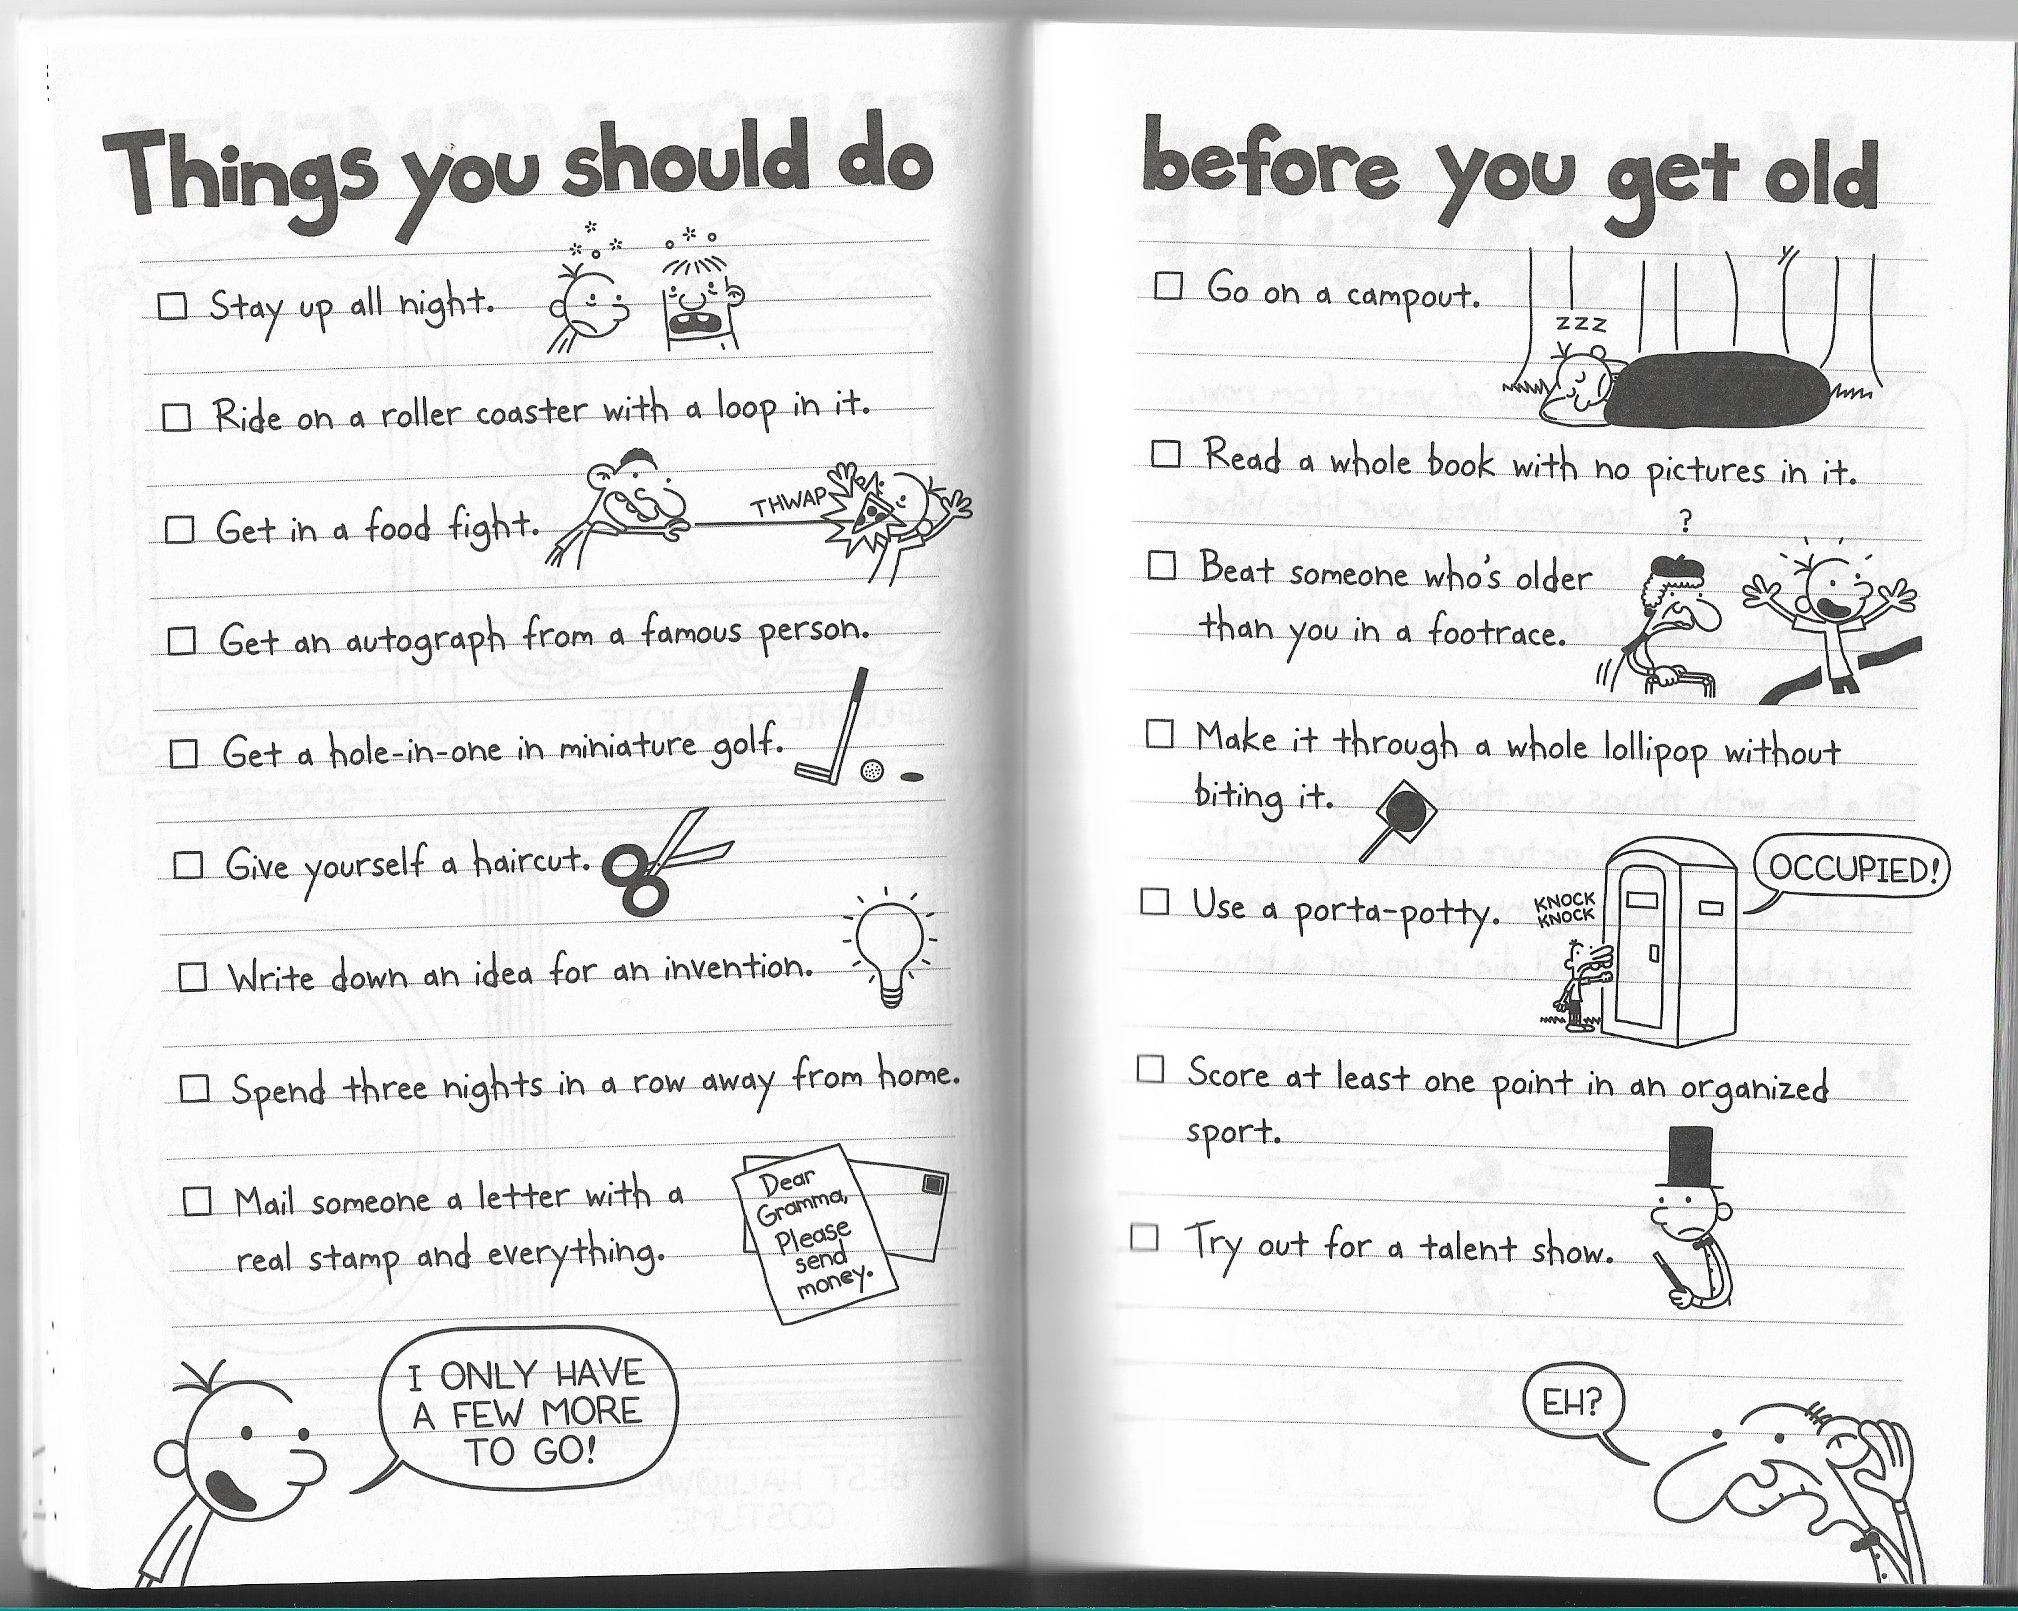 Things you should do
Stay up all night.
Ride on a roller coaster with a loop in it.
Get in a food fight.
THWAP
Get an autograph from a famous person.
Get a hole-in-one in miniature golf.
Give yourself a haircut.
Write down an idea for an invention.
Spend three nights in a row away from home.
Mail someone a letter with a
real stamp and everything.
Dear
Gramma,
Please
send
money.
I ONLY HAVE
A FEW MORE
TO GO!
before you get old
Go on a campout.
ZZZ
Read a whole book with no pictures in it.
?
Beat someone who's older
than you in a footrace.
Make it through a whole lollipop without
biting it.
Use a porta-potty.
KNOCK
KNOCK
OCCUPIED!
Score at least one point in an organized
sport.
Try out for a talent show.
EH?